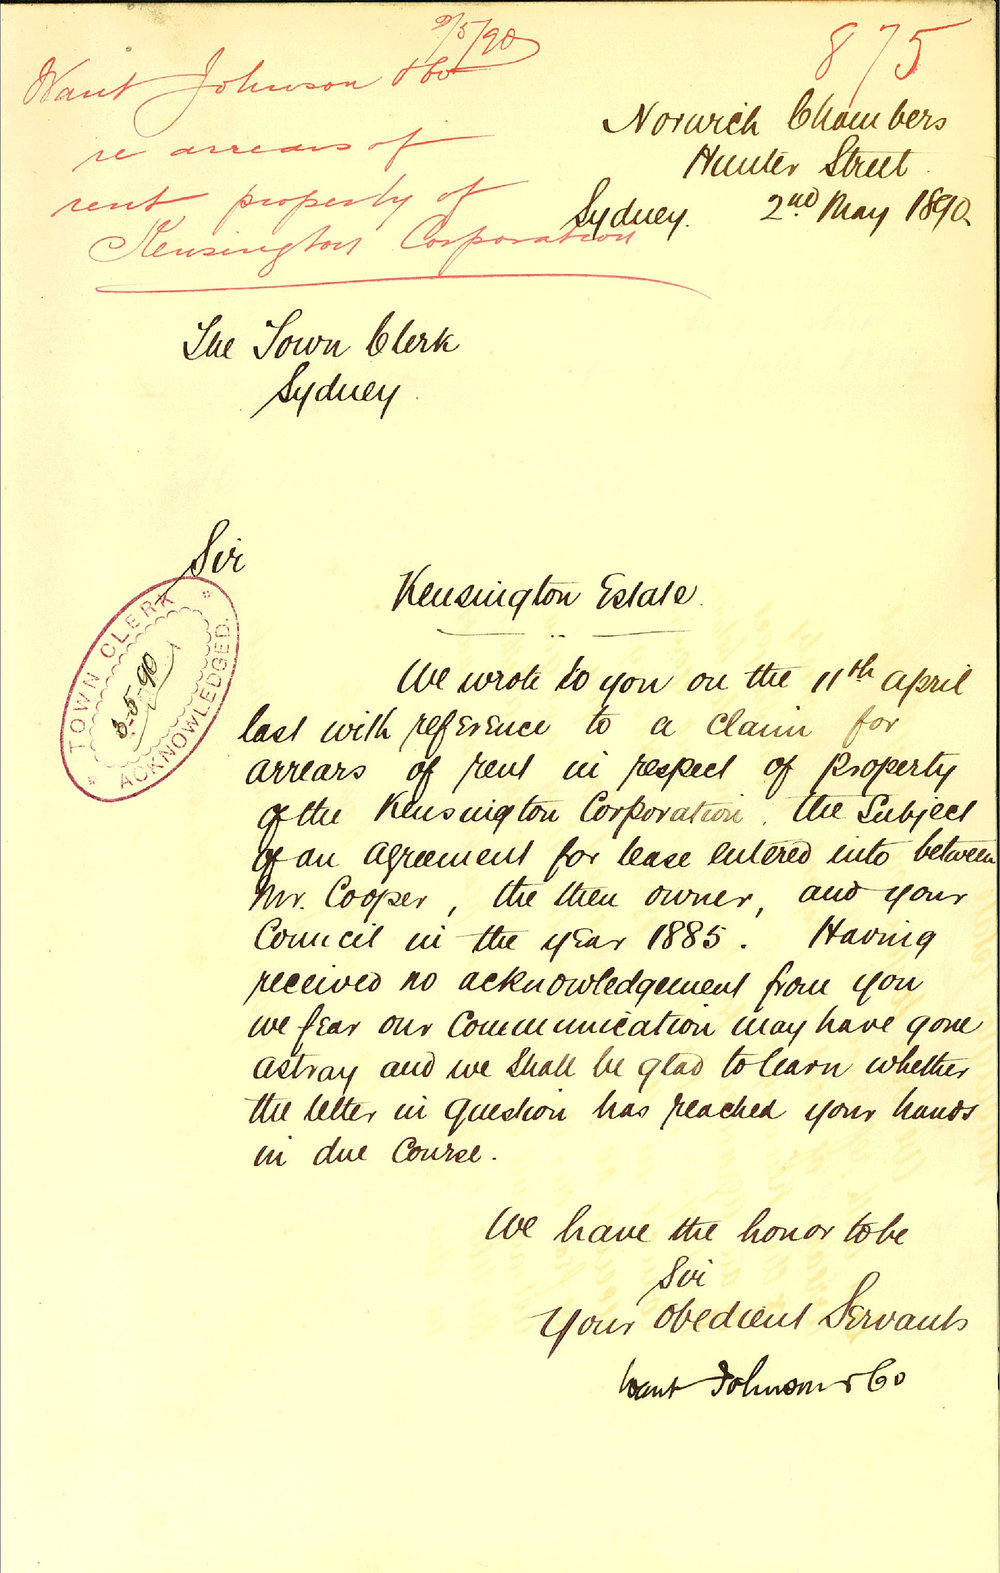 2/5/90
875
Want Johnson & Co
re arrears of
rent property of
Kensington Corporation
Norwich Chambers
Hunter Street
Sydney. 2nd May 1890.
The Town Clerk
Sydney.
Sir
Kensington Estate.
TOWN CLERK
3.5.90
ACKNOWLEDGED.
We wrote to you on the 11th April
last with reference to a claim for
arrears of rent in respect of property
of the Kensington Corporation, the subject
of an agreement for lease entered into between
Mr. Cooper, the then owner, and your
Council in the year 1885. Having
received no acknowledgement from you
we fear our communication may have gone
astray and we shall be glad to learn whether
the letter in question has reached your hands
in due course.
We have the honor to be
Sir
Your Obedient Servants
Want Johnson & Co